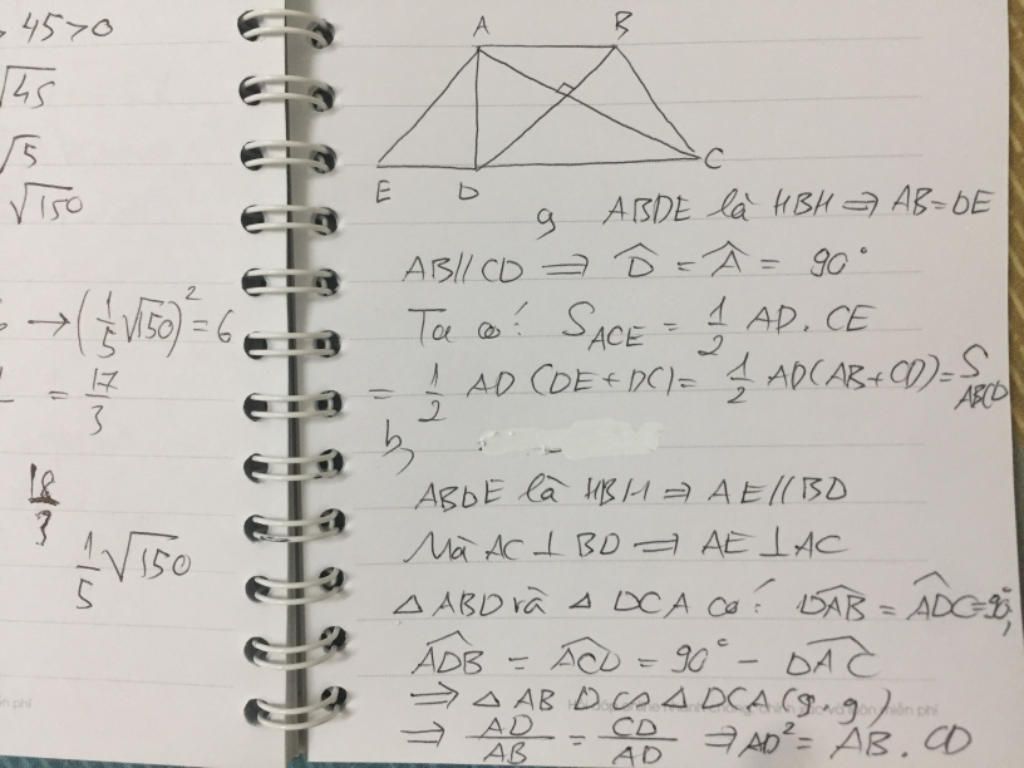 45>0
√45
√5
√150
→ (1/5 √150)² = 6
= 17/3
18/3
1/5 √150
A B
E D C
a, ABDE là HBH ⇒ AB = DE
AB // CD ⇒ D̂ = Â = 90°
Ta có: S_ACE = 1/2 AD . CE
= 1/2 AD (DE + DC) = 1/2 AD (AB + CD) = S_ABCD
b,
ABDE là HBH ⇒ AE // BD
Mà AC ⊥ BD ⇒ AE ⊥ AC
△ ABD và △ DCA có: D̂AB = ÂDC = 90°,
ÂDB = ÂCD = 90° − D̂AC
⇒ △ ABD ∽ △ DCA (g.g)
⇒ AD/AB = CD/AD ⇒ AD² = AB . CD